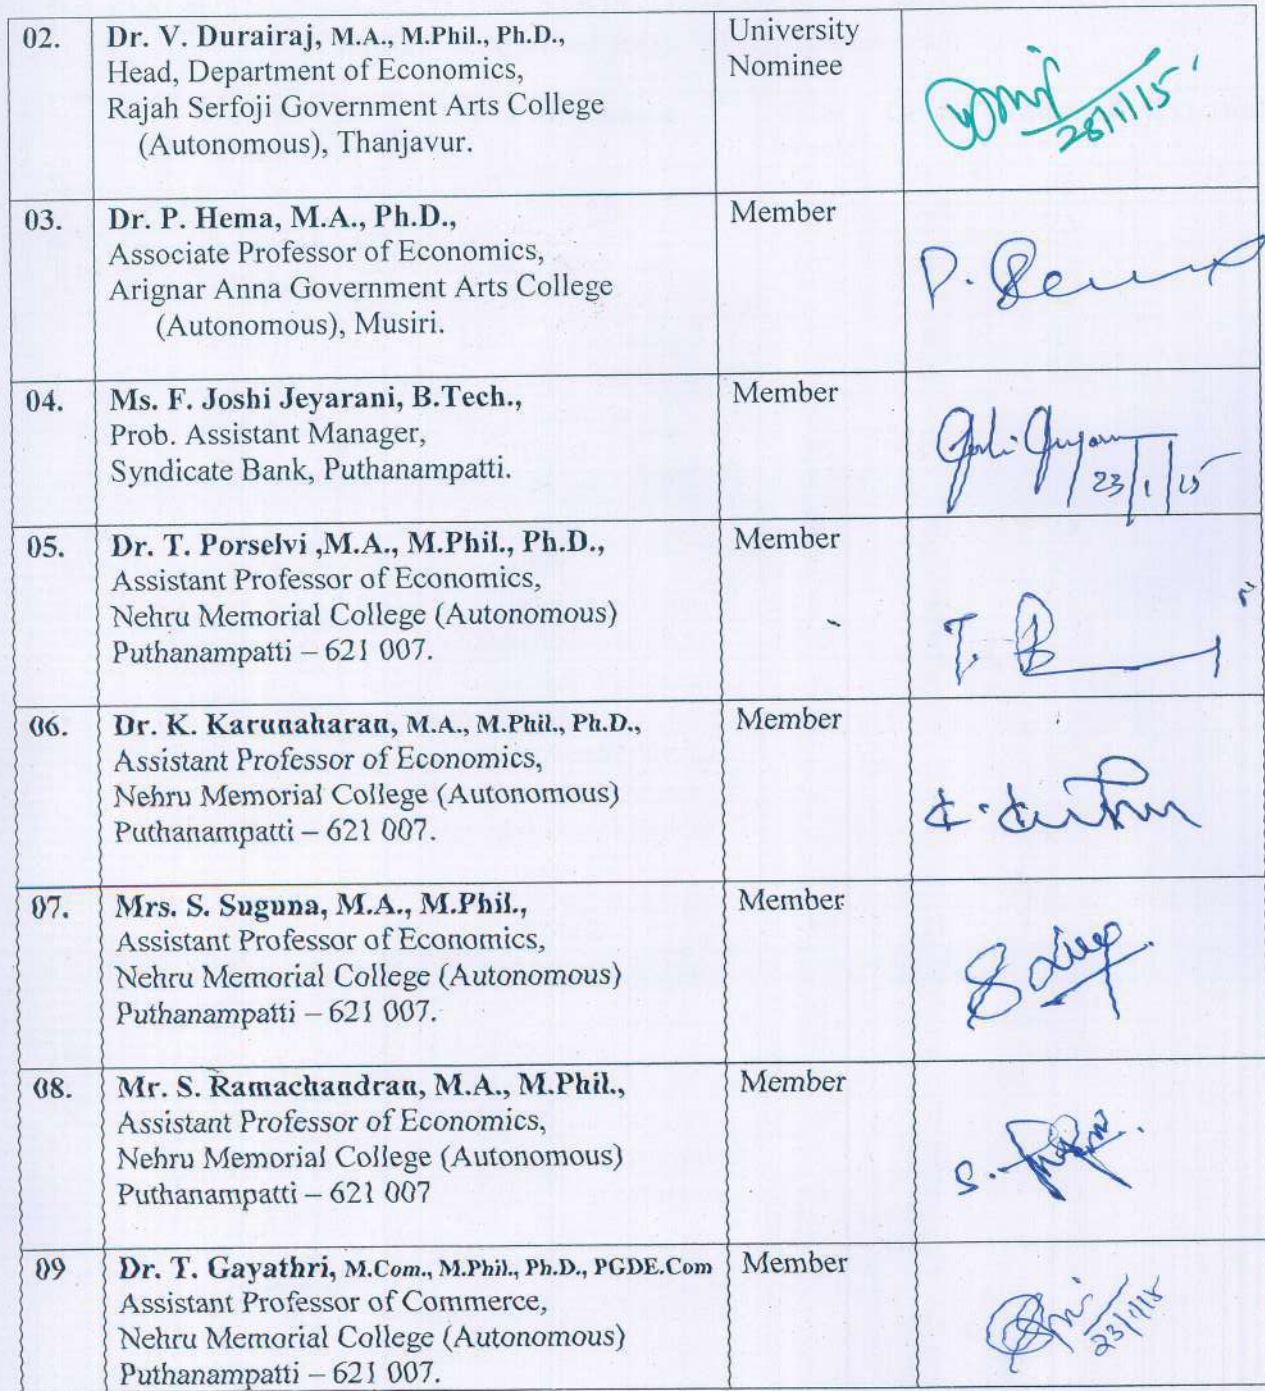 02.
Dr. V. Durairaj, M.A., M.Phil., Ph.D.,
Head, Department of Economics,
Rajah Serfoji Government Arts College
(Autonomous), Thanjavur.
University
Nominee
28/1/15
03.
Dr. P. Hema, M.A., Ph.D.,
Associate Professor of Economics,
Arignar Anna Government Arts College
(Autonomous), Musiri.
Member
P.
04.
Ms. F. Joshi Jeyarani, B.Tech.,
Prob. Assistant Manager,
Syndicate Bank, Puthanampatti.
Member
23/1/15
05.
Dr. T. Porselvi ,M.A., M.Phil., Ph.D.,
Assistant Professor of Economics,
Nehru Memorial College (Autonomous)
Puthanampatti – 621 007.
Member
T.
06.
Dr. K. Karunaharan, M.A., M.Phil., Ph.D.,
Assistant Professor of Economics,
Nehru Memorial College (Autonomous)
Puthanampatti – 621 007.
Member
07.
Mrs. S. Suguna, M.A., M.Phil.,
Assistant Professor of Economics,
Nehru Memorial College (Autonomous)
Puthanampatti – 621 007.
Member
08.
Mr. S. Ramachandran, M.A., M.Phil.,
Assistant Professor of Economics,
Nehru Memorial College (Autonomous)
Puthanampatti – 621 007
Member
S.
09
Dr. T. Gayathri, M.Com., M.Phil., Ph.D., PGDE.Com
Assistant Professor of Commerce,
Nehru Memorial College (Autonomous)
Puthanampatti – 621 007.
Member
23/1/15